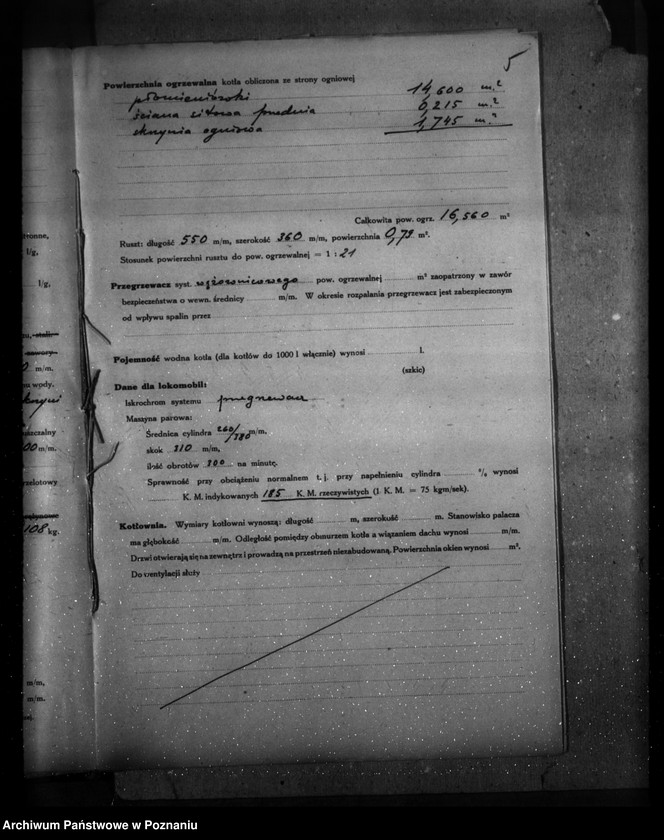 5
Powierzchnia ogrzewalna kotła obliczona ze strony ogniowej
płomieniówski 14,600 m²
ściana sitowa przednia 0,215 m²
skrzynia ogniowa 1,745 m²
Całkowita pow. ogrz. 16,560 m²
Ruszt: długość 550 m/m, szerokość 360 m/m, powierzchnia 0,79 m².
Stosunek powierzchni rusztu do pow. ogrzewalnej = 1 : 21
Przegrzewacz syst. pow. ogrzewalnej m² zaopatrzony w zawór
bezpieczeństwa o wewn. średnicy m/m. W okresie rozpalania przegrzewacz jest zabezpieczonym
od wpływu spalin przez
Pojemność wodna kotła (dla kotłów do 1000 l włącznie) wynosi l.
(szkic)
Dane dla lokomobil:
Iskrochron systemu
Maszyna parowa:
Średnica cylindra 260/380 m/m,
skok 310 m/m,
ilość obrotów 200 na minutę.
Sprawność przy obciążeniu normalnem t. j. przy napełnieniu cylindra % wynosi
K. M. indykowanych 185 K. M. rzeczywistych (1 K. M. = 75 kgm/sek).
Kotłownia. Wymiary kotłowni wynoszą: długość m, szerokość m. Stanowisko palacza
ma głębokość m/m. Odległość pomiędzy obmurzem kotła a wiązaniem dachu wynosi m/m.
Drzwi otwierają się na zewnętrz i prowadzą na przestrzeń niezabudowaną. Powierzchnia okien wynosi m².
Do wentylacji służy
l/g,
l/g,
m/m.
m wody.
00 m/m.
108 kg.
m/m,
m/m.
Archiwum Państwowe w Poznaniu